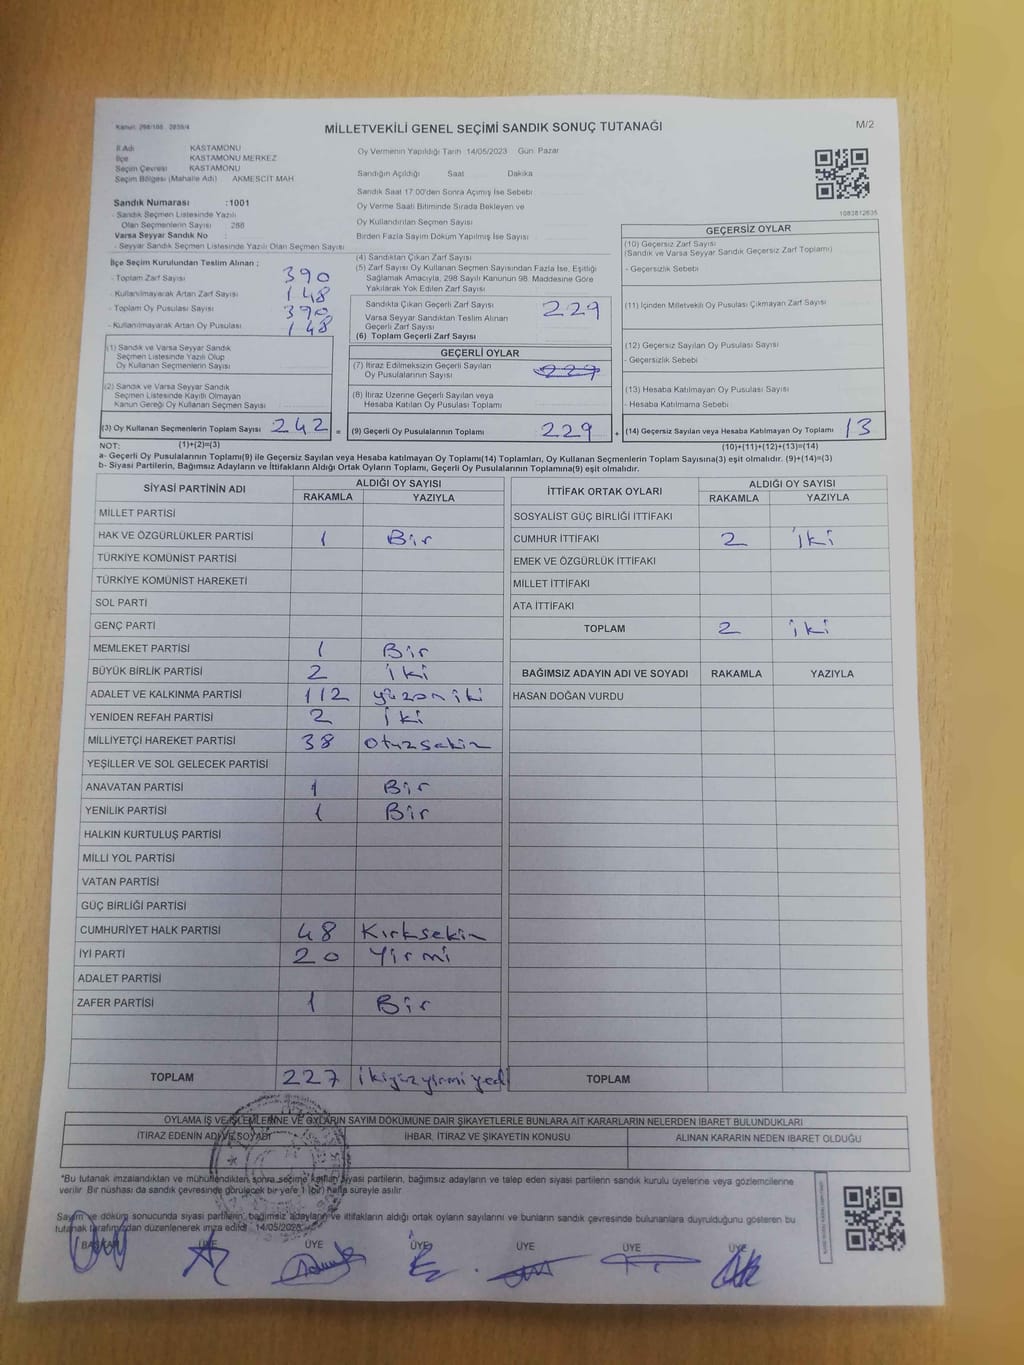 Kanun: 298/105 2839/4
MİLLETVEKİLİ GENEL SEÇİMİ SANDIK SONUÇ TUTANAĞI
M/2
İl Adı : KASTAMONU
İlçe : KASTAMONU MERKEZ
Seçim Çevresi : KASTAMONU
Seçim Bölgesi (Mahalle Adı) : AKMESCİT MAH
Sandık Numarası :1001
- Sandık Seçmen Listesinde Yazılı
Olan Seçmenlerin Sayısı : 288
Varsa Seyyar Sandık No :
- Seyyar Sandık Seçmen Listesinde Yazılı Olan Seçmen Sayısı :
Oy Vermenin Yapıldığı Tarih 14/05/2023 Gün: Pazar
Sandığın Açıldığı Saat Dakika
Sandık Saat 17:00'den Sonra Açımış İse Sebebi
Oy Verme Saati Bitiminde Sırada Bekleyen ve
Oy Kullandırılan Seçmen Sayısı
Birden Fazla Sayım Döküm Yapılmış İse Sayısı
1083812635
İlçe Seçim Kurulundan Teslim Alınan ;
- Toplam Zarf Sayısı 390
- Kullanılmayarak Artan Zarf Sayısı 148
- Toplam Oy Pusulası Sayısı 390
- Kullanılmayarak Artan Oy Pusulası 148
(1) Sandık ve Varsa Seyyar Sandık
Seçmen Listesinde Yazılı Olup
Oy Kullanan Seçmenlerin Sayısı
(2) Sandık ve Varsa Seyyar Sandık
Seçmen Listesinde Kayıtlı Olmayan
Kanun Gereği Oy Kullanan Seçmen Sayısı
(3) Oy Kullanan Seçmenlerin Toplam Sayısı 242 =
(4) Sandıktan Çıkan Zarf Sayısı
(5) Zarf Sayısı Oy Kullanan Seçmen Sayısından Fazla İse, Eşitliği
Sağlamak Amacıyla, 298 Sayılı Kanunun 98. Maddesine Göre
Yakılarak Yok Edilen Zarf Sayısı
Sandıkta Çıkan Geçerli Zarf Sayısı 229
Varsa Seyyar Sandıktan Teslim Alınan
Geçerli Zarf Sayısı
(6) Toplam Geçerli Zarf Sayısı
GEÇERLİ OYLAR
(7) İtiraz Edilmeksizin Geçerli Sayılan
Oy Pusulalarının Sayısı 229
(8) İtiraz Üzerine Geçerli Sayılan veya
Hesaba Katılan Oy Pusulası Toplamı
(9) Geçerli Oy Pusulalarının Toplamı 229 +
GEÇERSİZ OYLAR
(10) Geçersiz Zarf Sayısı
(Sandık ve Varsa Seyyar Sandık Geçersiz Zarf Toplamı)
- Geçersizlik Sebebi
(11) İçinden Milletvekili Oy Pusulası Çıkmayan Zarf Sayısı
(12) Geçersiz Sayılan Oy Pusulası Sayısı
- Geçersizlik Sebebi
(13) Hesaba Katılmayan Oy Pusulası Sayısı
- Hesaba Katılmama Sebebi
(14) Geçersiz Sayılan veya Hesaba Katılmayan Oy Toplamı 13
NOT: (1)+(2)=(3)
(10)+(11)+(12)+(13)=(14)
a- Geçerli Oy Pusulalarının Toplamı(9) ile Geçersiz Sayılan veya Hesaba katılmayan Oy Toplamı(14) Toplamları, Oy Kullanan Seçmenlerin Toplam Sayısına(3) eşit olmalıdır. (9)+(14)=(3)
b- Siyasi Partilerin, Bağımsız Adayların ve İttifakların Aldığı Ortak Oyların Toplamı, Geçerli Oy Pusulalarının Toplamına(9) eşit olmalıdır.
SİYASİ PARTİNİN ADI ALDIĞI OY SAYISI
RAKAMLA YAZIYLA
MİLLET PARTİSİ
HAK VE ÖZGÜRLÜKLER PARTİSİ 1 Bir
TÜRKİYE KOMÜNİST PARTİSİ
TÜRKİYE KOMÜNİST HAREKETİ
SOL PARTİ
GENÇ PARTİ
MEMLEKET PARTİSİ 1 Bir
BÜYÜK BİRLİK PARTİSİ 2 iki
ADALET VE KALKINMA PARTİSİ 112 yüzoniki
YENİDEN REFAH PARTİSİ 2 iki
MİLLİYETÇİ HAREKET PARTİSİ 38 otuzsekiz
YEŞİLLER VE SOL GELECEK PARTİSİ
ANAVATAN PARTİSİ 1 Bir
YENİLİK PARTİSİ 1 Bir
HALKIN KURTULUŞ PARTİSİ
MİLLİ YOL PARTİSİ
VATAN PARTİSİ
GÜÇ BİRLİĞİ PARTİSİ
CUMHURİYET HALK PARTİSİ 48 Kırksekiz
İYİ PARTİ 20 Yirmi
ADALET PARTİSİ
ZAFER PARTİSİ 1 Bir
TOPLAM 227 ikiyüzyirmiyedi
İTTİFAK ORTAK OYLARI ALDIĞI OY SAYISI
RAKAMLA YAZIYLA
SOSYALİST GÜÇ BİRLİĞİ İTTİFAKI
CUMHUR İTTİFAKI 2 iki
EMEK VE ÖZGÜRLÜK İTTİFAKI
MİLLET İTTİFAKI
ATA İTTİFAKI
TOPLAM 2 iki
BAĞIMSIZ ADAYIN ADI VE SOYADI RAKAMLA YAZIYLA
HASAN DOĞAN VURDU
TOPLAM
OYLAMA İŞ VE İŞLEMLERİNE VE OYLARIN SAYIM DÖKÜMÜNE DAİR ŞİKAYETLERLE BUNLARA AİT KARARLARIN NELERDEN İBARET BULUNDUKLARI
İTİRAZ EDENİN ADI VE SOYADI İHBAR, İTİRAZ VE ŞİKAYETİN KONUSU ALINAN KARARIN NEDEN İBARET OLDUĞU
*Bu tutanak imzalandıktan ve mühürlendikten sonra seçime katılan siyasi partilerin, bağımsız adayların ve talep eden siyasi partilerin sandık kurulu üyelerine veya gözlemcilerine
verilir. Bir nüshası da sandık çevresinde görülecek bir yere 1 (bir) hafta süreyle asılır.
Sayım ve döküm sonucunda siyasi partilerin, bağımsız adayların ve ittifakların aldığı ortak oyların sayılarını ve bunların sandık çevresinde bulunanlara duyrulduğunu gösteren bu
tutanak tarafımızdan düzenlenerek imza edildi. 14/05/2023
BAŞKAN ÜYE ÜYE ÜYE ÜYE ÜYE ÜYE